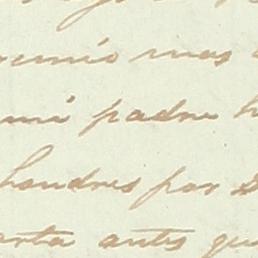 mas
mi padre h
Londres por
arta antes qu